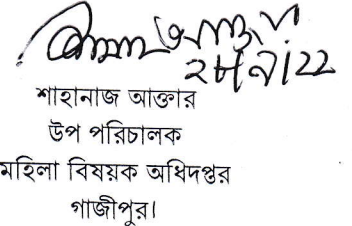 ২৮/৭/২২
শাহানাজ আক্তার
উপ পরিচালক
মহিলা বিষয়ক অধিদপ্তর
গাজীপুর।